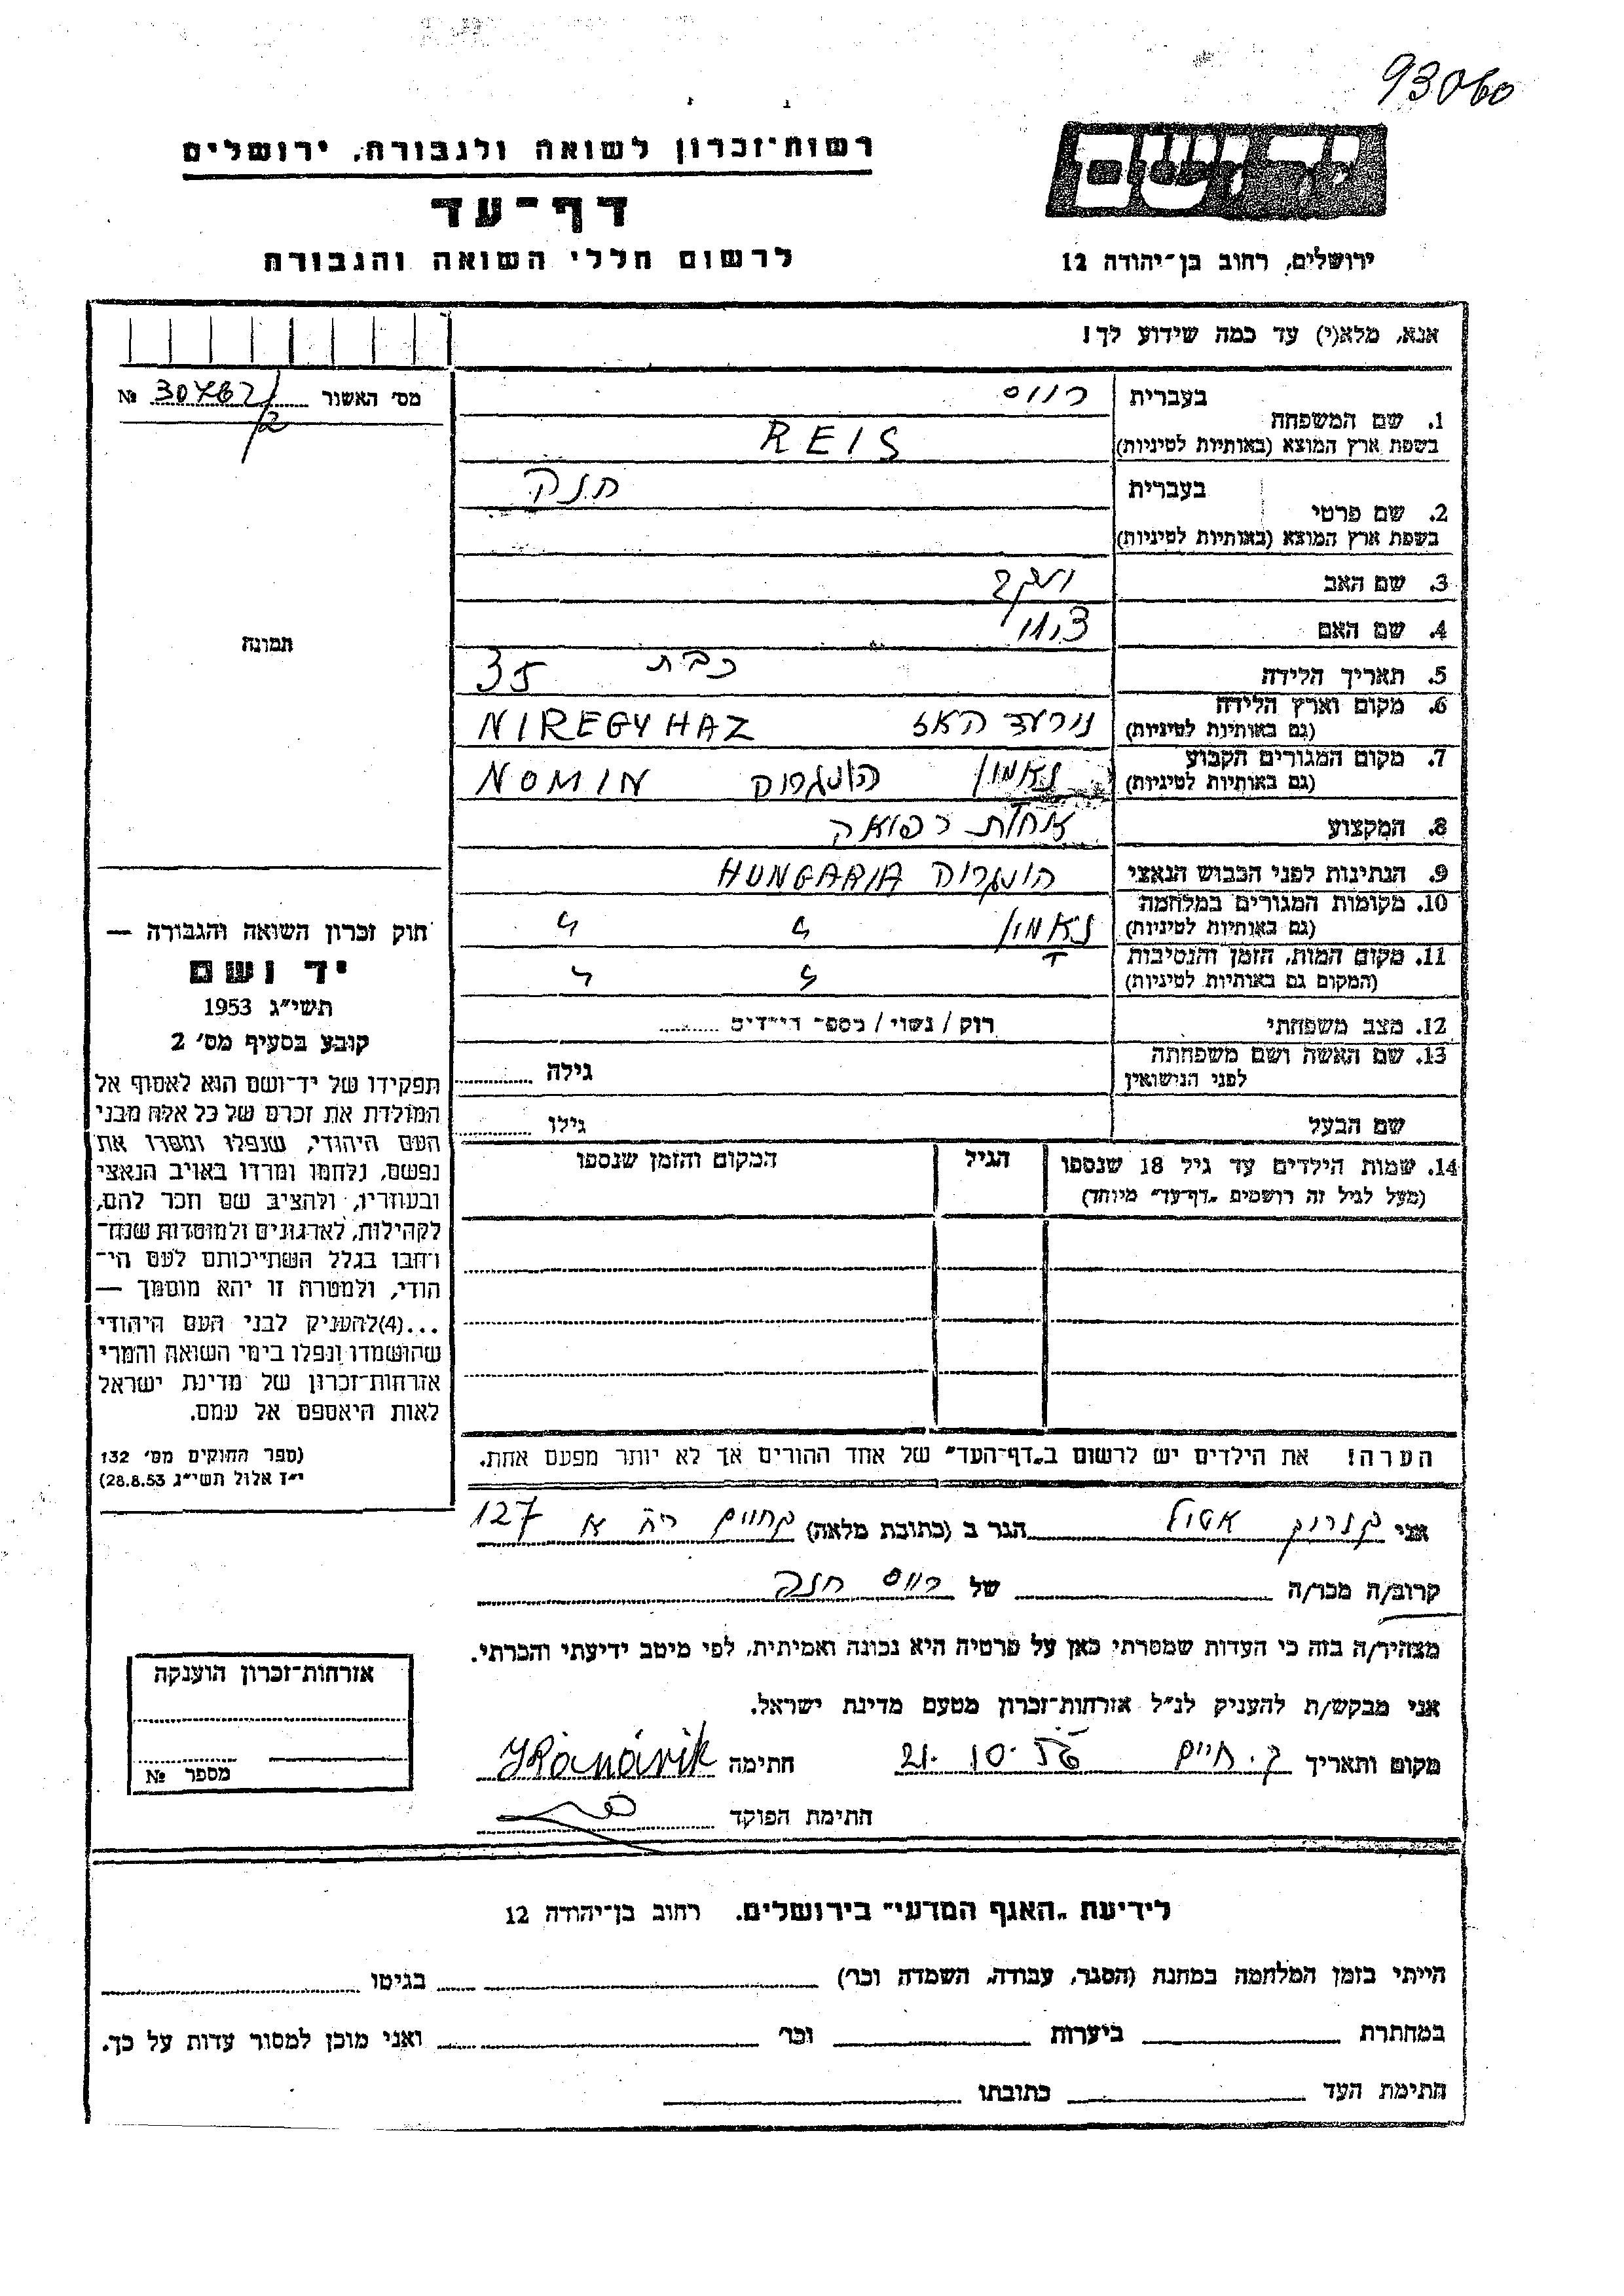 93060
רשות-זכרון לשואה ולגבורה, ירושלים
דף-עד
לרשום חללי השואה והגבורה
יד ושם
ירושלים, רחוב בן-יהודה 12
אנא, מלא(י) עד כמה שידוע לך!
מס' האשור № 30762/2
1. שם המשפחה
בעברית רייס
בשפת ארץ המוצא (באותיות לטיניות) REIS
2. שם פרטי
בעברית חנה
בשפת ארץ המוצא (באותיות לטיניות)
3. שם האב יעקב
4. שם האם
5. תאריך הלידה כבת 35
6. מקום וארץ הלידה
(גם באותיות לטיניות) האז NIREGYHAZ
7. מקום המגורים הקבוע
(גם באותיות לטיניות) הונגריה NOMIN
8. המקצוע אחות רפואה
9. הנתינות לפני הכבוש הנאצי הונגריה HUNGARIA
10. מקומות המגורים במלחמה
(גם באותיות לטיניות) " "
11. מקום המות, הזמן והנסיבות
(המקום גם באותיות לטיניות) " "
12. מצב משפחתי רוק / נשוי / מספר הילדים
13. שם האשה ושם משפחתה
לפני הנישואין גילה
שם הבעל גילו
14. שמות הילדים עד גיל 18 שנספו הגיל המקום והזמן שנספו
(מעל לגיל זה רושמים „דף-עד" מיוחד)
הערה! את הילדים יש לרשום ב„דף-העד" של אחד ההורים אך לא יותר מפעם אחת.
תמונה
חוק זכרון השואה והגבורה —
יד ושם
תשי"ג 1953
קובע בסעיף מס' 2
תפקידו של יד-ושם הוא לאסוף אל
המולדת את זכרם של כל אלה מבני
העם היהודי, שנפלו ומסרו את
נפשם, נלחמו ומרדו באויב הנאצי
ובעוזריו, ולהציב שם וזכר להם,
לקהילות, לארגונים ולמוסדות שנח-
רחבו בגלל השתייכותם לעם הי-
הודי, ולמטרה זו יהא מוסמך —
...(4)להעניק לבני העם היהודי
שהושמדו ונפלו בימי השואה והמרי
אזרחות-זכרון של מדינת ישראל
לאות היאספם אל עמם.
(ספר החוקים מס' 132
י"ז אלול תשי"ג 28.8.53)
אני אטול הגר ב (כתובת מלאה) ק חיים א 127
קרוב/ה מכר/ה של רייס חנה
מצהיר/ה בזה כי העדות שמסרתי כאן על פרטיה היא נכונה ואמיתית, לפי מיטב ידיעתי והכרתי.
אני מבקש/ת להעניק לנ"ל אזרחות-זכרון מטעם מדינת ישראל.
מקום ותאריך ק. חיים 21.10.56 חתימה
חתימת הפוקד
אזרחות-זכרון הוענקה
מספר №
לידיעת „האגף המדעי" בירושלים. רחוב בן-יהודה 12
הייתי בזמן המלחמה במחנה (הסגר, עבודה, השמדה וכו') בגיטו
במחתרת ביערות וכו' ואני מוכן למסור עדות על כך.
חתימת העד כתובתו